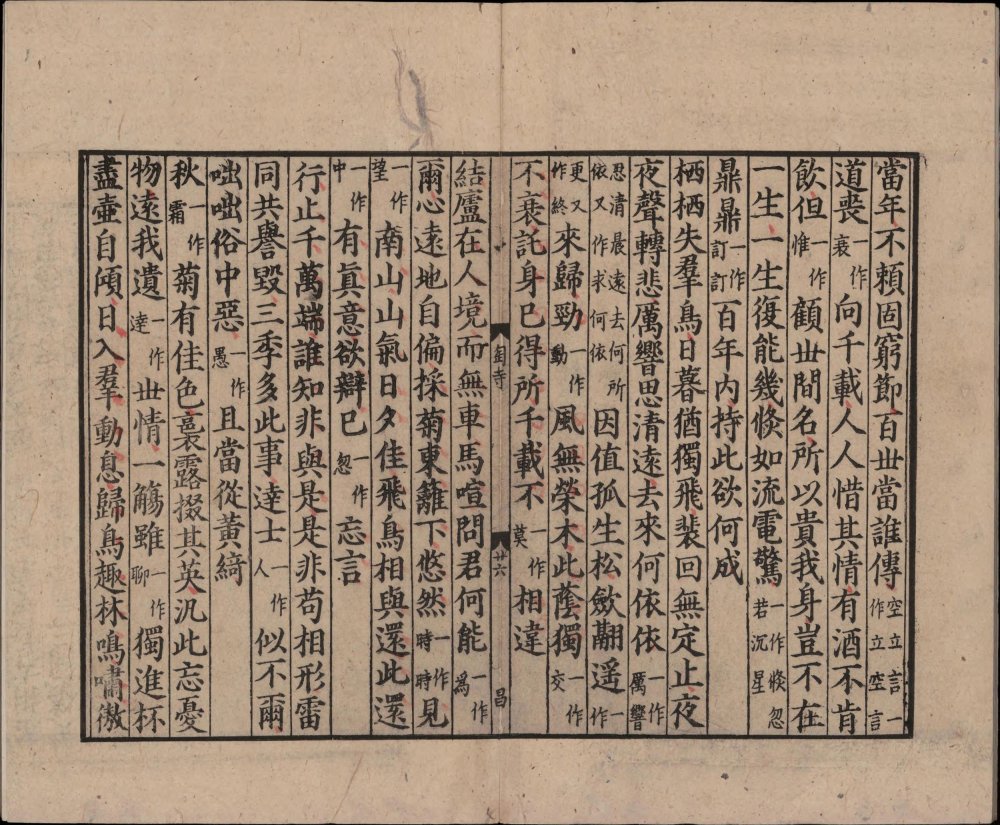 當年不頼固窮節百丗當誰傳空立言一作立空言
道喪一作衰向千載人人惜其情有酒不肯
飲但一作惟顧丗閒名所以貴我身豈不在
一生一生復能幾倐如流電驚一作倐忽若沉星
鼎鼎一作訂訂百年内持此欲何成
栖栖失羣鳥日暮猶獨飛裴回無定止夜
夜聲轉悲厲響思清遠去來何依依一作厲響
思清晨遠去何所依又作求何依因值孤生松斂翮遥一作
更又作終來歸勁一作動風無榮木此蔭獨一作交
不衰託身已得所千載不一作莫相違
匋寺
廿六
昌
結廬在人境而無車馬喧問君何能一作為
爾心遠地自偏採菊東籬下悠然一作時時見
一作望南山山氣日夕佳飛鳥相與還此還
一作中有真意欲辯已一作忽忘言
行止千萬端誰知非與是是非苟相形雷
同共譽毁三季多此事達士一作人似不爾
咄咄俗中惡一作愚且當從黃綺
秋一作霜菊有佳色裛露掇其英汎此忘憂
物遠我遺一作達丗情一觴雖一作聊獨進杯
盡壺自傾日入羣動息歸鳥趣林鳴嘯傲